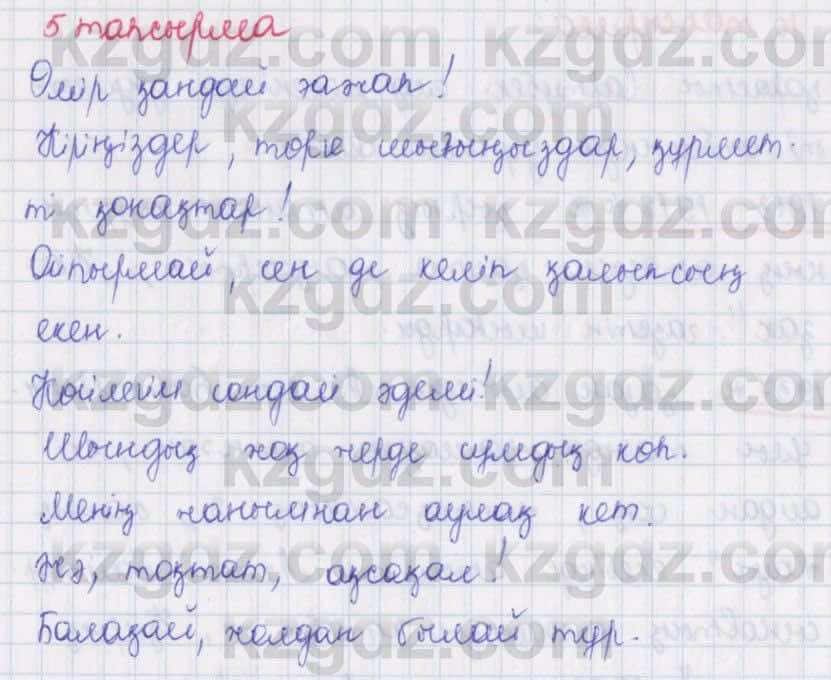 5 тапсырма
Өмір қандай ғажап!
Кіріңіздер, төрге шығыңыздар, құрмет-
ті қонақтар!
Ойпырмай, сен де келіп қалыпсың
екен.
Көйлегім сондай әдемі!
Шындық жоқ жерде сұмдық көп.
Менің жанымнан аулақ кет.
Жә, тоқтат, ақсақал!
Балақай, жолдан былай тұр.
kzgdz.com